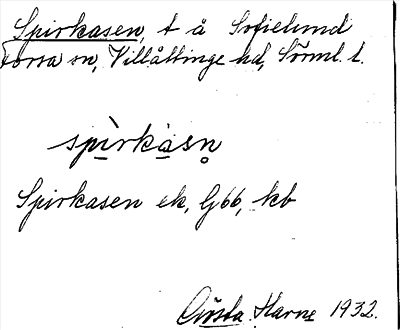 Spirkasen, t å Sofielund
Forssa sn, Villåttinge hd, Sörml. l.
spìrkàsn̥
Spirkasen ek, G66, kb
Gösta Harne 1932.